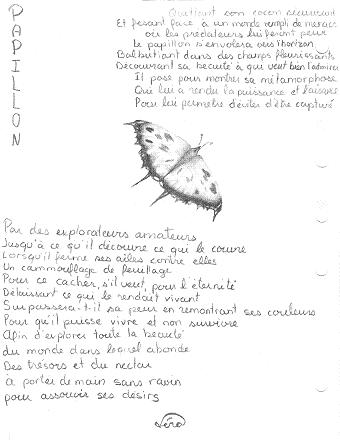 PAPILLON
Quittant son cocon rassurant
Et fesant face à un monde rempli de menaces
où les prédateurs lui feront peur
Le papillon s'envolera vers l'horizon
Balbutiant dans des champs fleurissants
Découvrant sa beauté à qui veut bien l'admirer
Il pose pour montrer sa métamorphose
Qui lui a rendu la puissance et l'aisance
Pour lui permetre d'éviter d'être capturé
Par des explorateurs amateurs
Jusqu'à ce qu'il découvre ce qui le couvre
Lorsqu'il ferme ses ailes contre elles
Un cammouflage de feuillage
Pour ce cacher, s'il veut, pour l'éternité
Délaissant ce qui le rendait vivant
Surpassera-t-il sa peur en remontrant ses couleurs
Pour qu'il puisse vivre et non survivre
Afin d'explorer toute la beauté
du monde dans lequel abonde
Des trésors et du nectar
a porter de main sans ravin
pour assouvir ses désirs
Véro